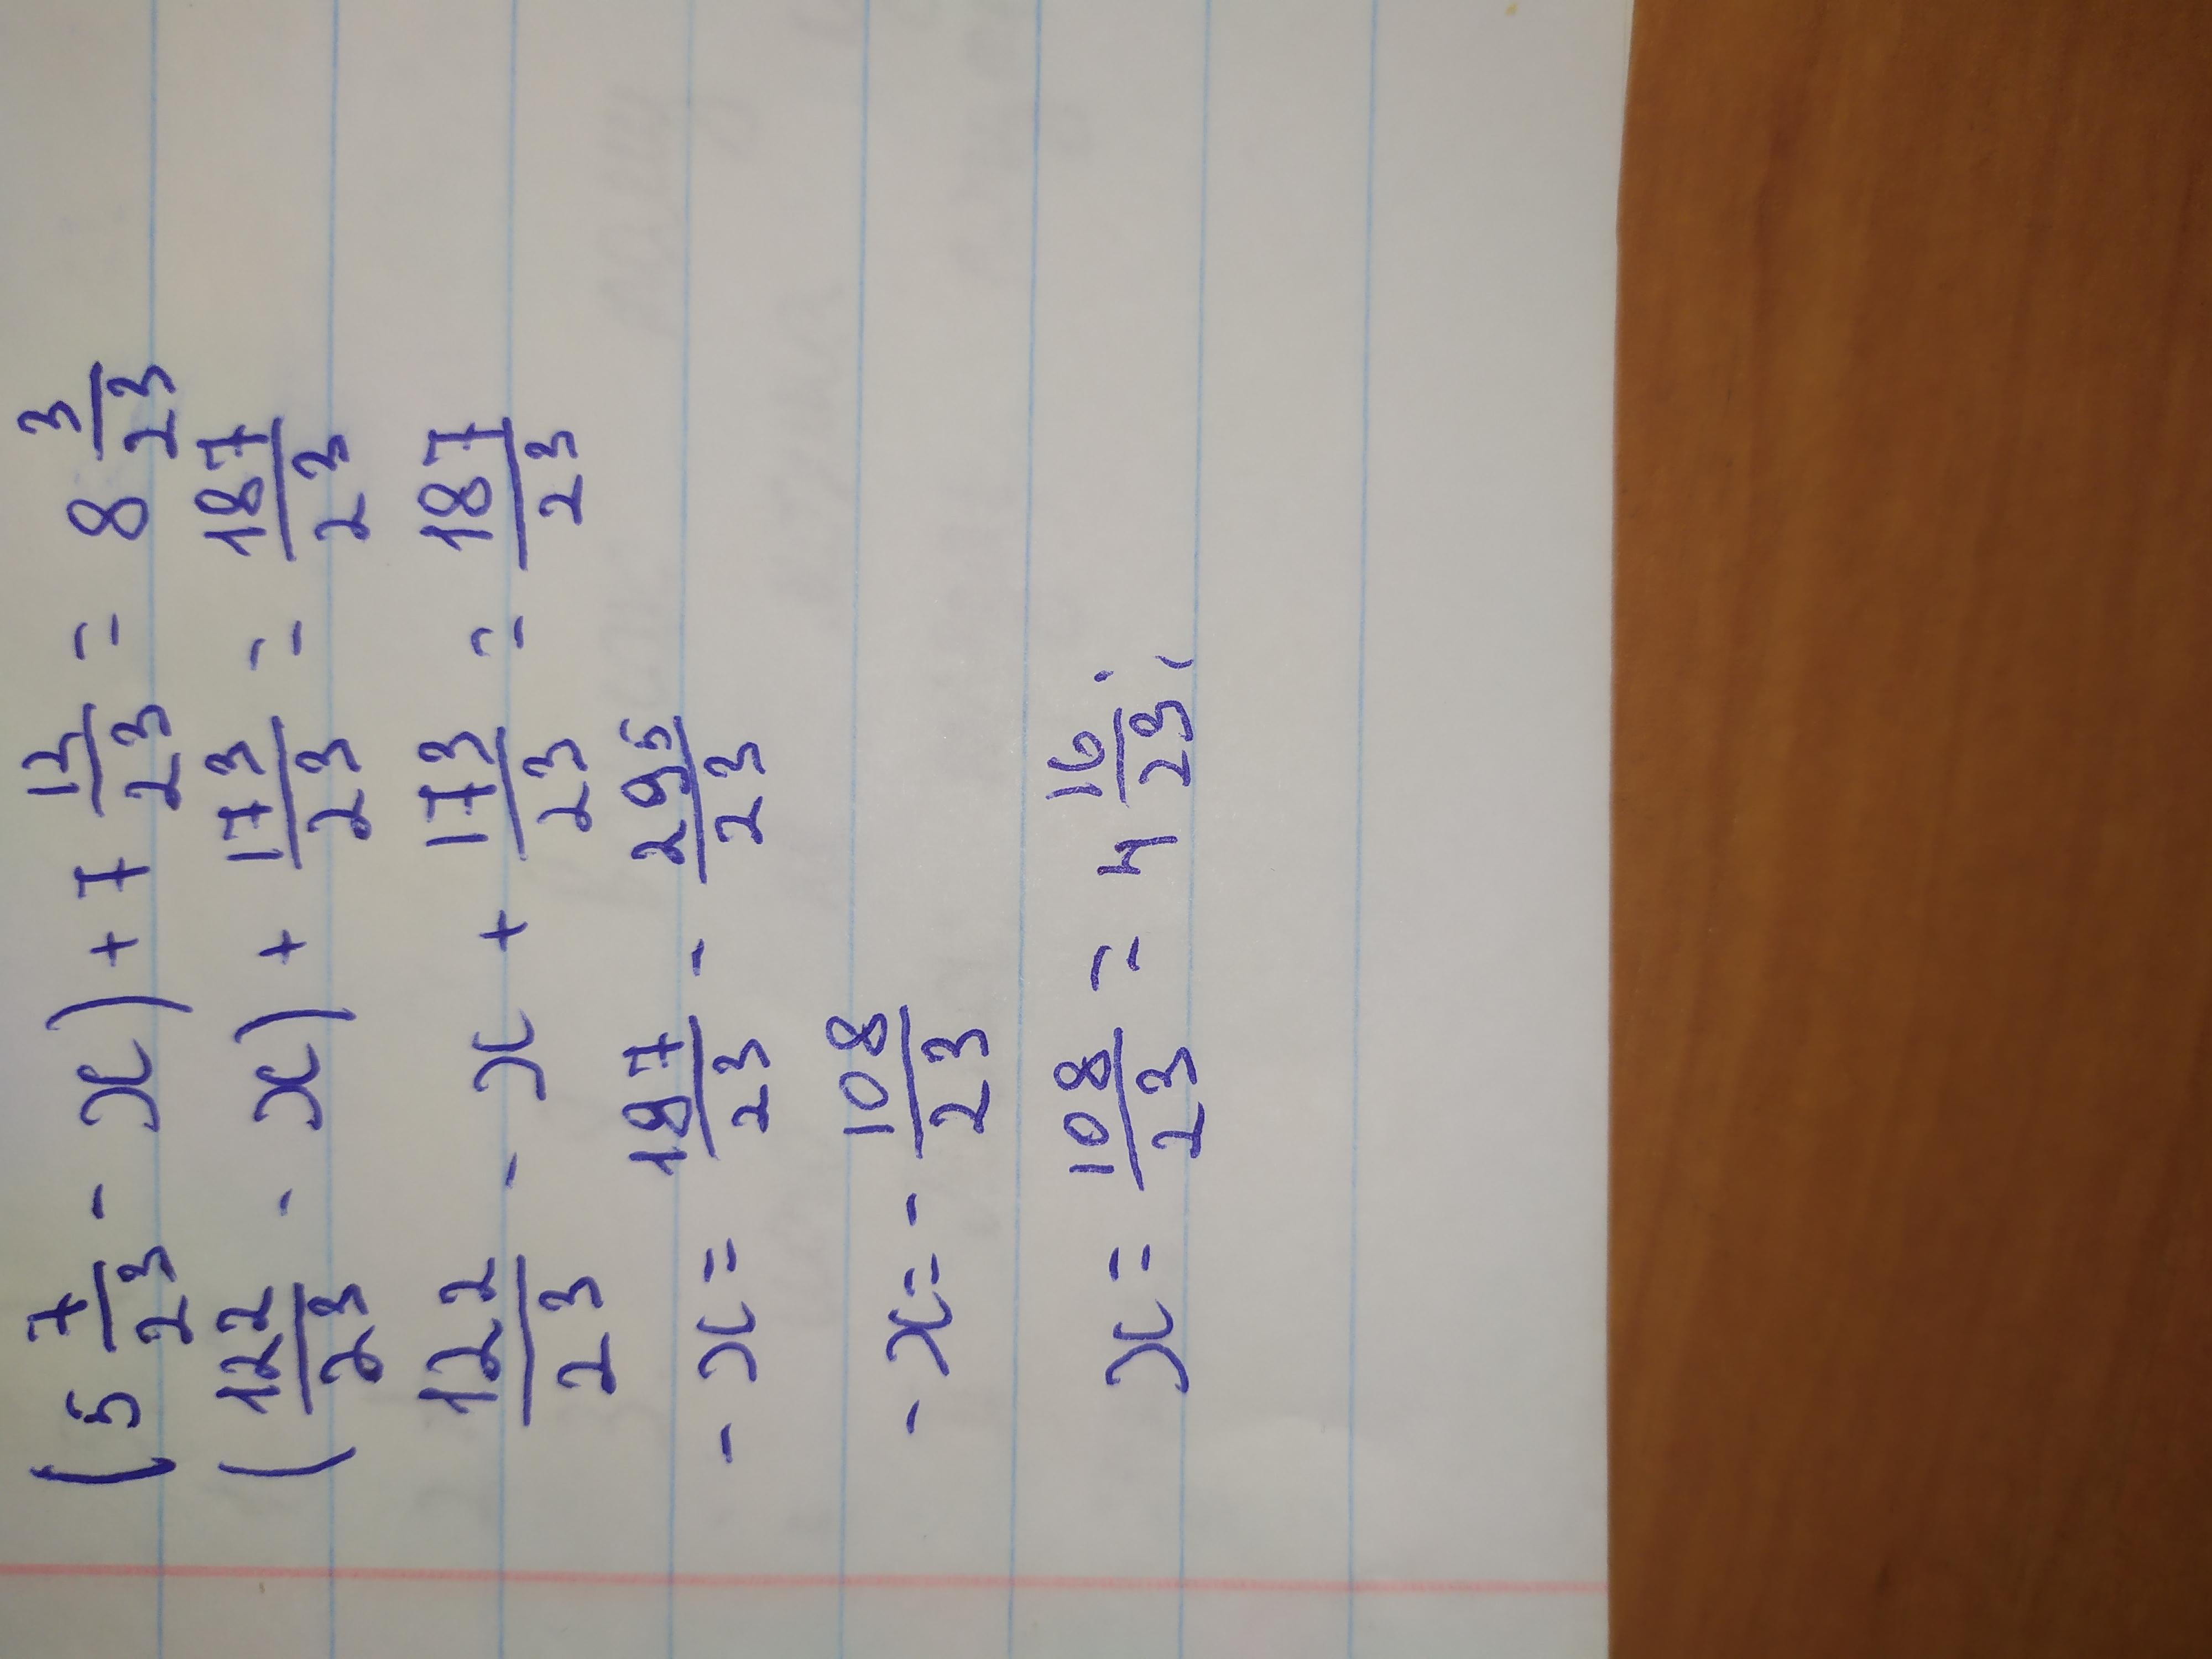 (5 7/23 - x) + 7 12/23 = 8 3/23
(122/23 - x) + 173/23 = 187/23
122/23 - x + 173/23 = 187/23
- x = 187/23 - 295/23
- x = - 108/23
x = 108/23 = 4 16/23;